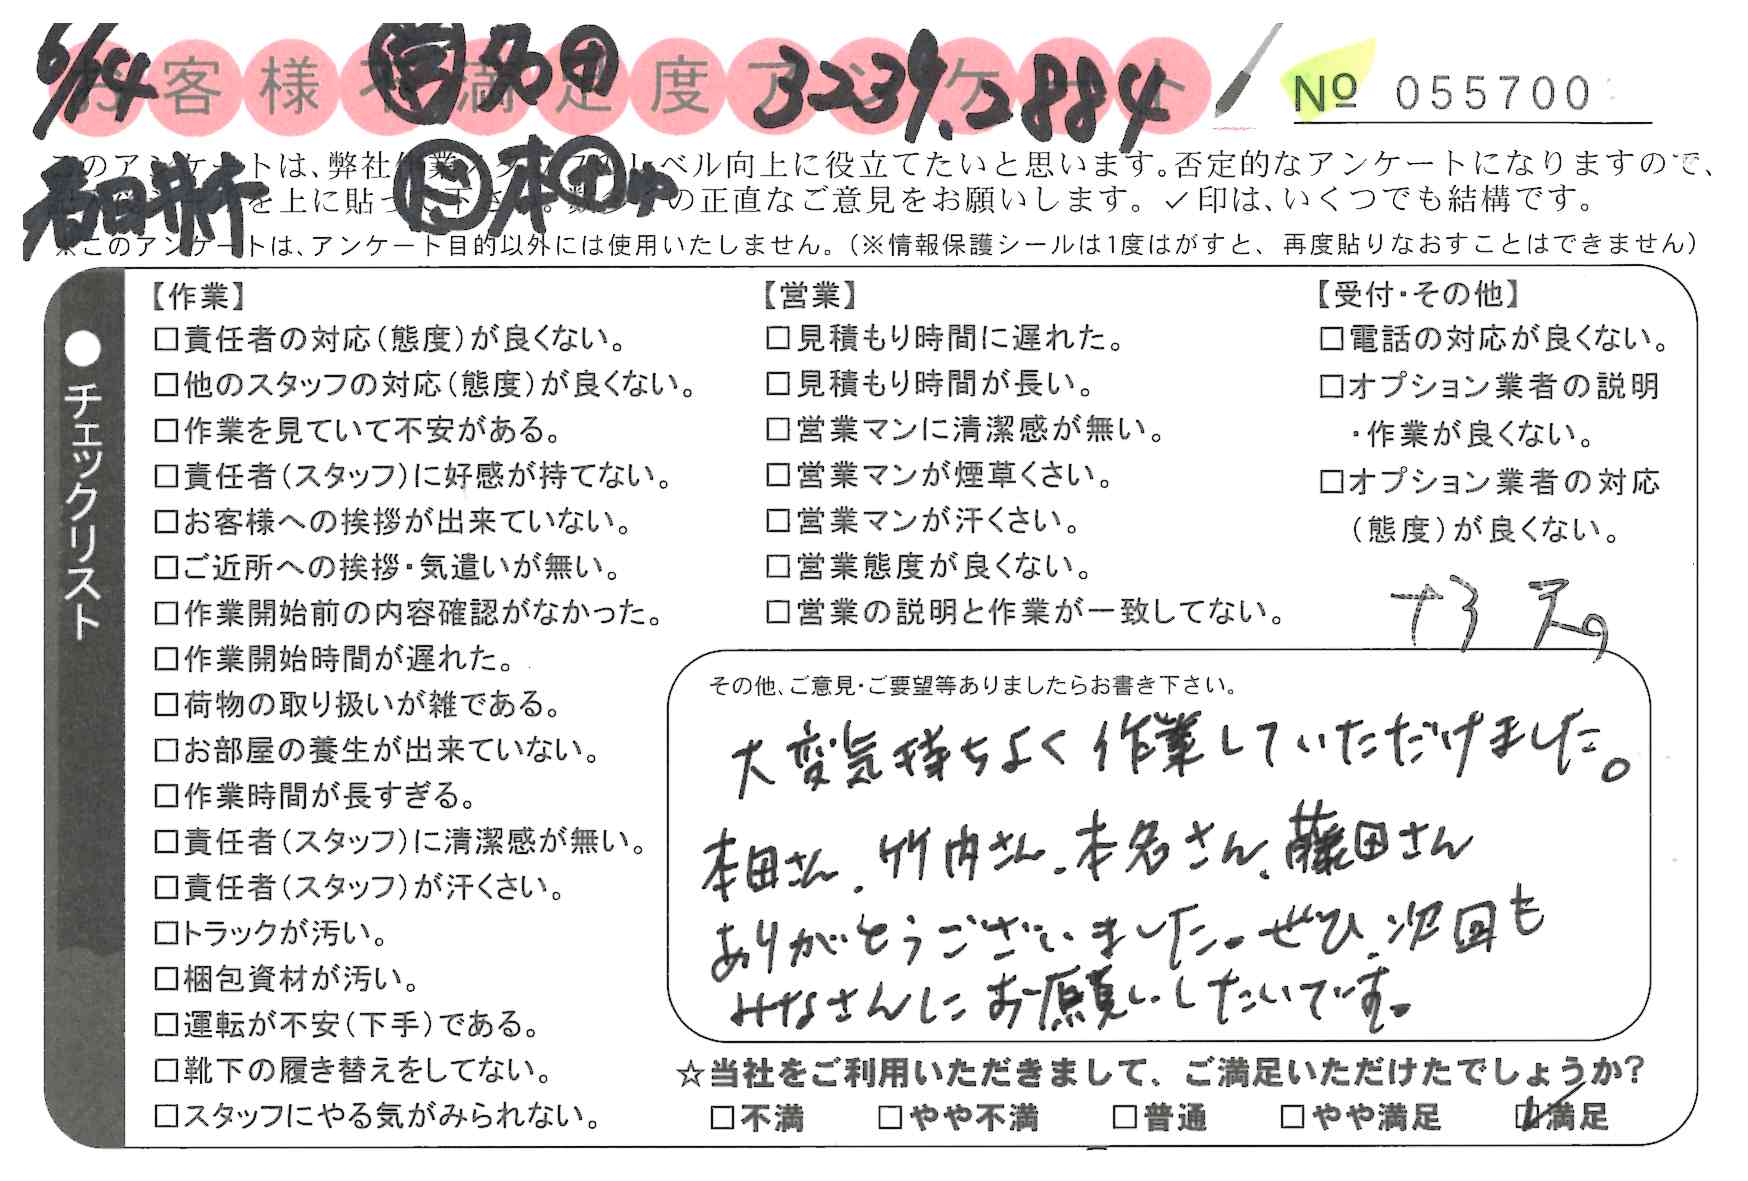 お客様不満足度アンケート
6/14
3239.2884
№ 055700
このアンケートは、弊社作業スタッフのレベル向上に役立てたいと思います。否定的なアンケートになりますので、
を上に貼って下さい。の正直なご意見をお願いします。✓印は、いくつでも結構です。
※このアンケートは、アンケート目的以外には使用いたしません。(※情報保護シールは1度はがすと、再度貼りなおすことはできません)
●チェックリスト
【作業】
□責任者の対応(態度)が良くない。
□他のスタッフの対応(態度)が良くない。
□作業を見ていて不安がある。
□責任者(スタッフ)に好感が持てない。
□お客様への挨拶が出来ていない。
□ご近所への挨拶・気遣いが無い。
□作業開始前の内容確認がなかった。
□作業開始時間が遅れた。
□荷物の取り扱いが雑である。
□お部屋の養生が出来ていない。
□作業時間が長すぎる。
□責任者(スタッフ)に清潔感が無い。
□責任者(スタッフ)が汗くさい。
□トラックが汚い。
□梱包資材が汚い。
□運転が不安(下手)である。
□靴下の履き替えをしてない。
□スタッフにやる気がみられない。
【営業】
□見積もり時間に遅れた。
□見積もり時間が長い。
□営業マンに清潔感が無い。
□営業マンが煙草くさい。
□営業マンが汗くさい。
□営業態度が良くない。
□営業の説明と作業が一致してない。
【受付・その他】
□電話の対応が良くない。
□オプション業者の説明
・作業が良くない。
□オプション業者の対応
(態度)が良くない。
その他、ご意見・ご要望等ありましたらお書き下さい。
大変気持ちよく作業していただけました。
本田さん、竹内さん、本名さん、藤田さん
ありがとうございました。ぜひ、次回も
みなさんにお願いしたいです。
☆当社をご利用いただきまして、ご満足いただけたでしょうか?
□不満 □やや不満 □普通 □やや満足 ☑満足